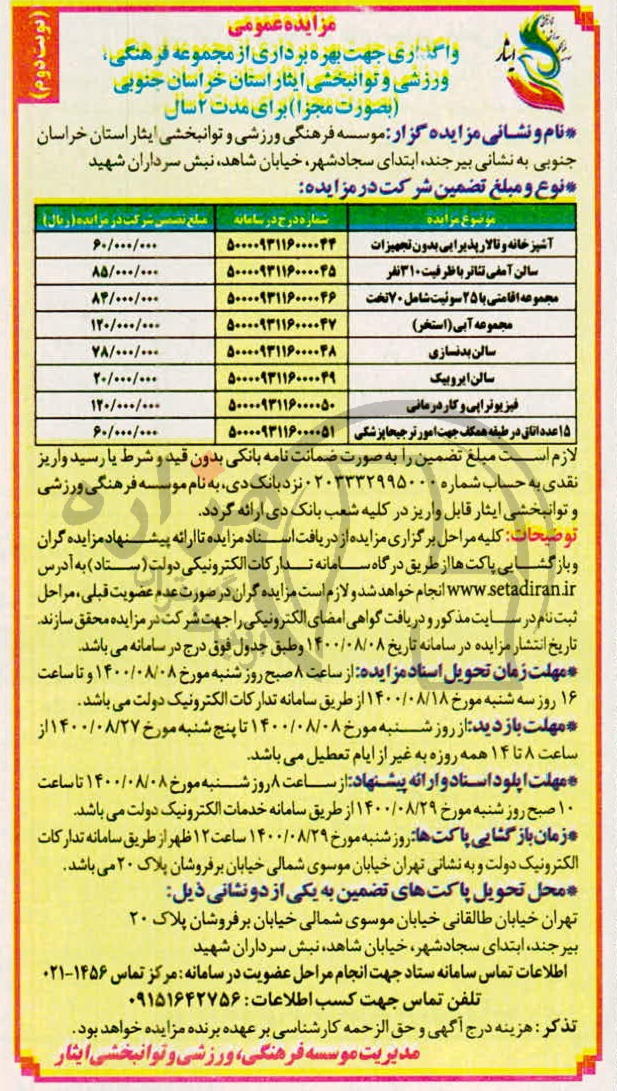 مزایده عمومی
(نوبت دوم)
واگذاری جهت بهره برداری از مجموعه فرهنگی،
ورزشی و توانبخشی ایثار استان خراسان جنوبی
(بصورت مجزا) برای مدت ۲ سال
ایثار
*نام و نشانی مزایده گزار: موسسه فرهنگی ورزشی و توانبخشی ایثار استان خراسان
جنوبی به نشانی بیرجند، ابتدای سجادشهر، خیابان شاهد، نبش سرداران شهید
*نوع و مبلغ تضمین شرکت در مزایده:
موضوع مزایده شماره درج در سامانه مبلغ تضمین شرکت در مزایده (ریال)
آشپزخانه و تالار پذیرایی بدون تجهیزات ۵۰۰۰۰۹۳۱۱۶۰۰۰۰۴۴ ۶۰/۰۰۰/۰۰۰
سالن آمفی تئاتر با ظرفیت ۳۱۰ نفر ۵۰۰۰۰۹۳۱۱۶۰۰۰۰۴۵ ۸۵/۰۰۰/۰۰۰
مجموعه اقامتی با ۲۵ سوئیت شامل ۷۰ تخت ۵۰۰۰۰۹۳۱۱۶۰۰۰۰۴۶ ۸۴/۰۰۰/۰۰۰
مجموعه آبی (استخر) ۵۰۰۰۰۹۳۱۱۶۰۰۰۰۴۷ ۱۲۰/۰۰۰/۰۰۰
سالن بدنسازی ۵۰۰۰۰۹۳۱۱۶۰۰۰۰۴۸ ۷۸/۰۰۰/۰۰۰
سالن ایروبیک ۵۰۰۰۰۹۳۱۱۶۰۰۰۰۴۹ ۲۰/۰۰۰/۰۰۰
فیزیوتراپی و کاردرمانی ۵۰۰۰۰۹۳۱۱۶۰۰۰۰۵۰ ۱۲۰/۰۰۰/۰۰۰
۱۵ عدد اتاق در طبقه همکف جهت امور ترجیحا پزشکی ۵۰۰۰۰۹۳۱۱۶۰۰۰۰۵۱ ۶۰/۰۰۰/۰۰۰
لازم است مبلغ تضمین را به صورت ضمانت نامه بانکی بدون قید و شرط یا رسید واریز
نقدی به حساب شماره ۰۲۰۳۳۳۲۹۹۵۰۰۰ نزد بانک دی، به نام موسسه فرهنگی ورزشی
و توانبخشی ایثار قابل واریز در کلیه شعب بانک دی ارائه گردد.
توضیحات: کلیه مراحل برگزاری مزایده از دریافت اسناد مزایده تا ارائه پیشنهاد مزایده گران
و بازگشایی پاکت ها از طریق درگاه سامانه تدارکات الکترونیکی دولت (ستاد) به آدرس
www.setadiran.ir انجام خواهد شد و لازم است مزایده گران در صورت عدم عضویت قبلی، مراحل
ثبت نام در سایت مذکور و دریافت گواهی امضای الکترونیکی را جهت شرکت در مزایده محقق سازند.
تاریخ انتشار مزایده در سامانه تاریخ ۱۴۰۰/۰۸/۰۸ وطبق جدول فوق درج در سامانه می باشد.
*مهلت زمان تحویل اسناد مزایده: از ساعت ۸ صبح روز شنبه مورخ ۱۴۰۰/۰۸/۰۸ و تا ساعت
۱۶ روز سه شنبه مورخ ۱۴۰۰/۰۸/۱۸ از طریق سامانه تدارکات الکترونیک دولت می باشد.
*مهلت بازدید: از روز شنبه مورخ ۱۴۰۰/۰۸/۰۸ تا پنج شنبه مورخ ۱۴۰۰/۰۸/۲۷ از
ساعت ۸ تا ۱۴ همه روزه به غیر از ایام تعطیل می باشد.
*مهلت اپلود اسناد و ارائه پیشنهاد: از ساعت ۸ روز شنبه مورخ ۱۴۰۰/۰۸/۰۸ تا ساعت
۱۰ صبح روز شنبه مورخ ۱۴۰۰/۰۸/۲۹ از طریق سامانه خدمات الکترونیک دولت می باشد.
*زمان بازگشایی پاکت ها: روز شنبه مورخ ۱۴۰۰/۰۸/۲۹ ساعت ۱۲ ظهر از طریق سامانه تدارکات
الکترونیک دولت و به نشانی تهران خیابان موسوی شمالی خیابان برفروشان پلاک ۲۰ می باشد.
*محل تحویل پاکت های تضمین به یکی از دو نشانی ذیل:
تهران خیابان طالقانی خیابان موسوی شمالی خیابان برفروشان پلاک ۲۰
بیرجند، ابتدای سجادشهر، خیابان شاهد، نبش سرداران شهید
اطلاعات تماس سامانه ستاد جهت انجام مراحل عضویت در سامانه: مرکز تماس ۱۴۵۶-۰۲۱
تلفن تماس جهت کسب اطلاعات: ۰۹۱۵۱۶۴۲۷۵۶
تذکر: هزینه درج آگهی و حق الزحمه کارشناسی بر عهده برنده مزایده خواهد بود.
مدیریت موسسه فرهنگی، ورزشی و توانبخشی ایثار